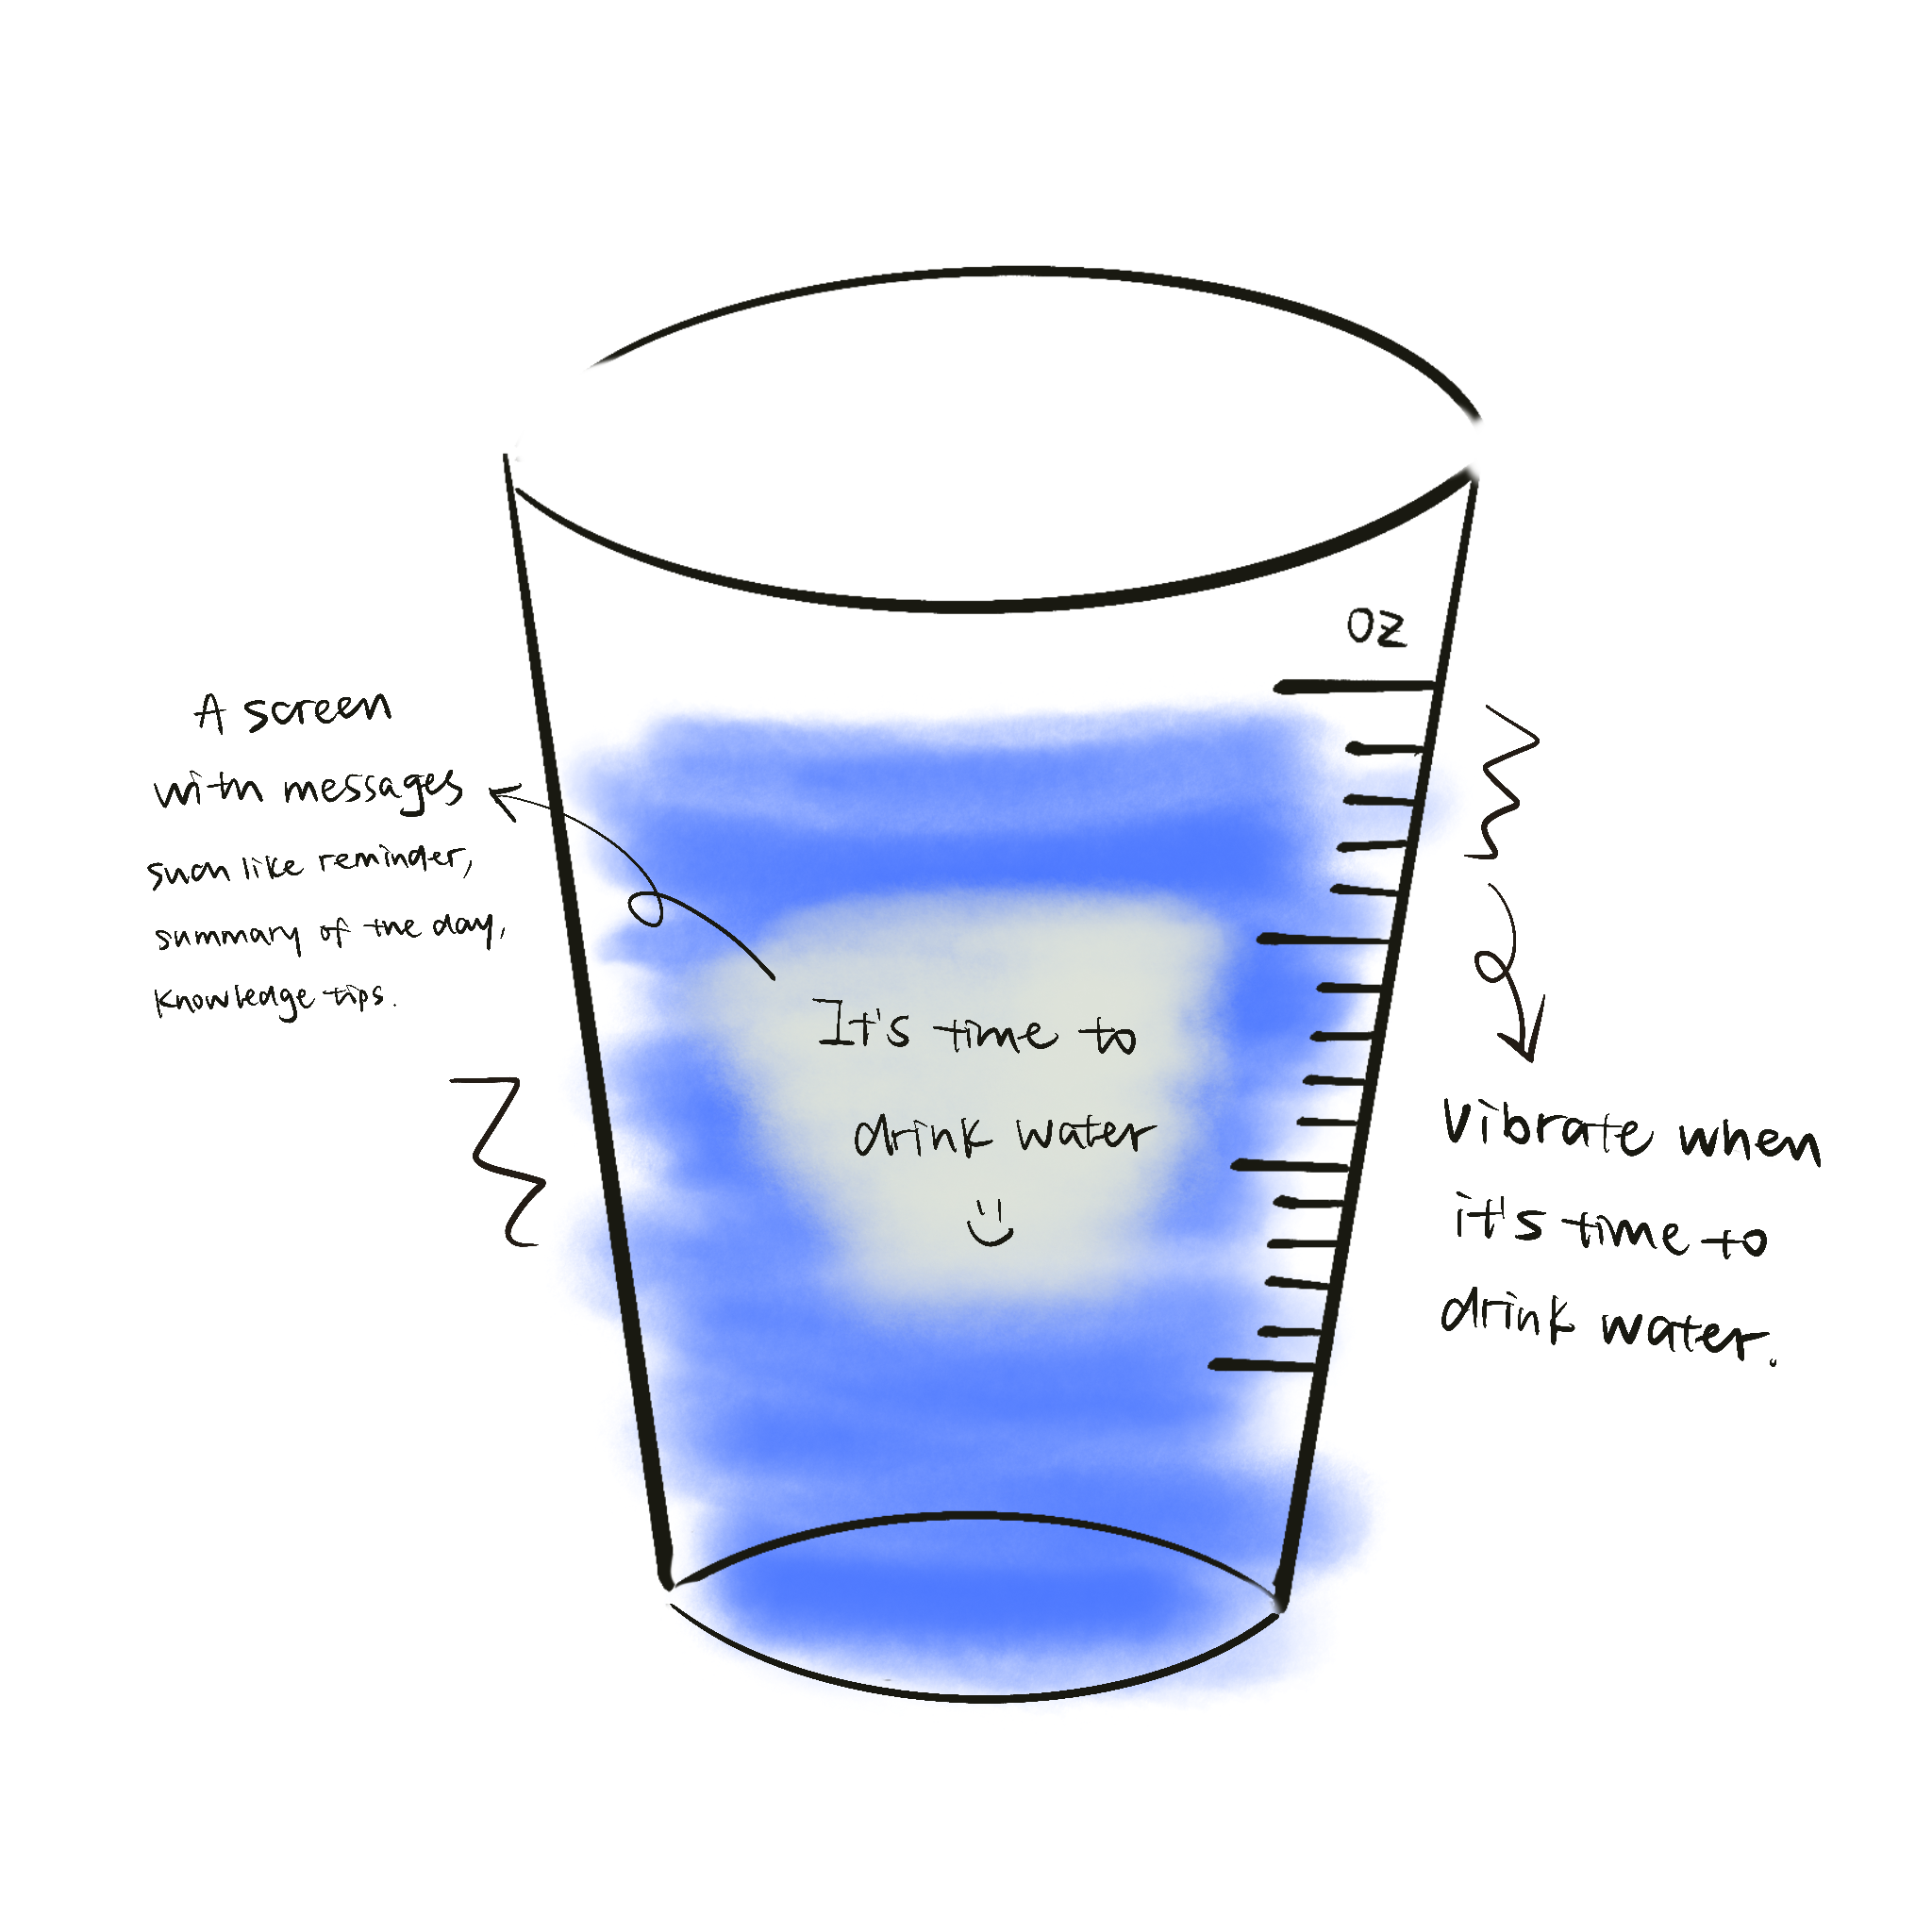 OZ
A screen
with messages
such like reminder,
summary of the day,
knowledge tips.
It's time to
drink water
Vibrate when
it's time to
drink water.